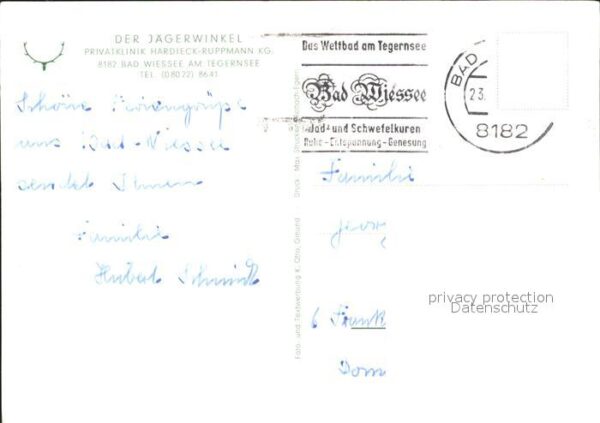 DER JÄGERWINKEL
PRIVATKLINIK HARDIECK-RUPPMANN KG.
8182 BAD WIESSEE AM TEGERNSEE
TEL. (08022) 8641
Das Weltbad am Tegernsee
Bad Wiessee
Jod- und Schwefelkuren
Ruhe-Entspannung-Genesung
BAD
23.
8182
Schöne Feriengrüße
aus Bad-Wiessee
sendet Ihnen
Familie
Hubert Schmidt
Foto- und Textwerbung K. Otto, Gmund
Druck: Max
Familie
6 Frank
Dom
privacy protection
Datenschutz